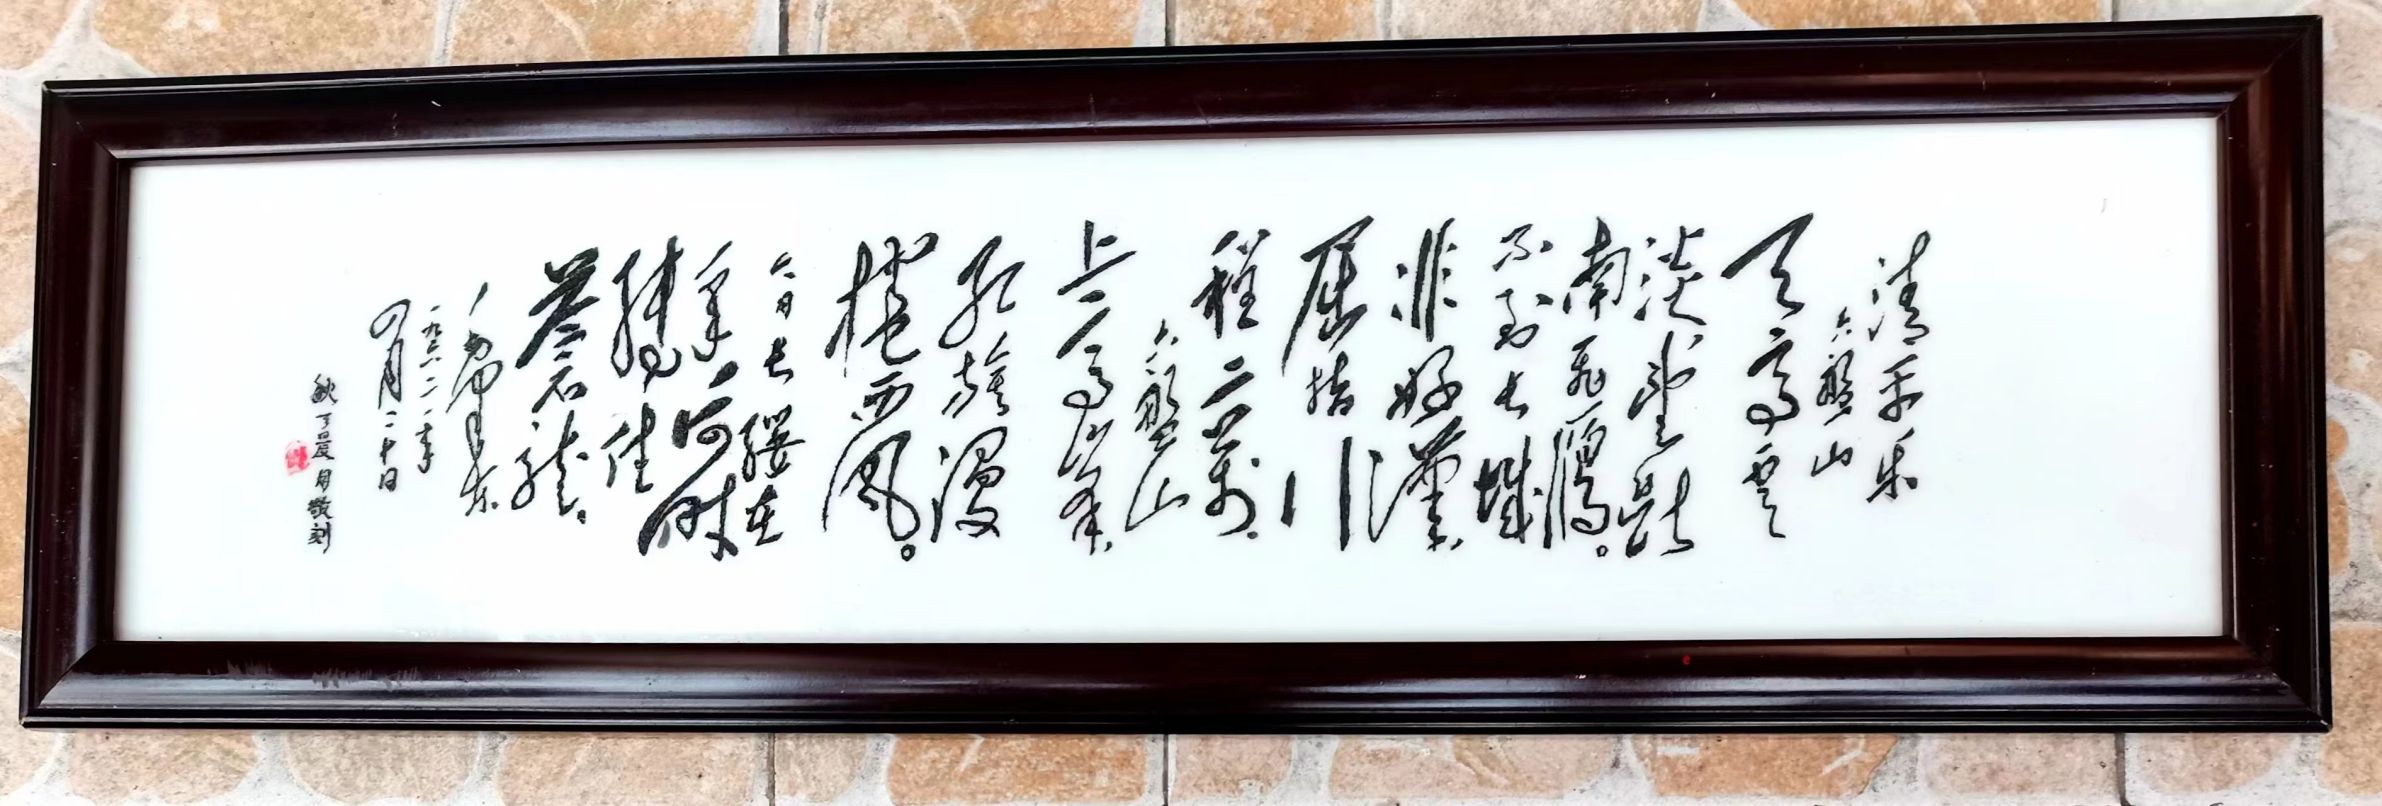 清平乐
六盘山
天高雲
淡，望断
南飛雁。
不到长城
非好漢，
屈指行
程二万。
六盘山
上高峰，
红旗漫
捲西风。
今日长缨在
手，何时
缚住
苍龙。
毛泽东
一九六一年
四月二十日
敬刻